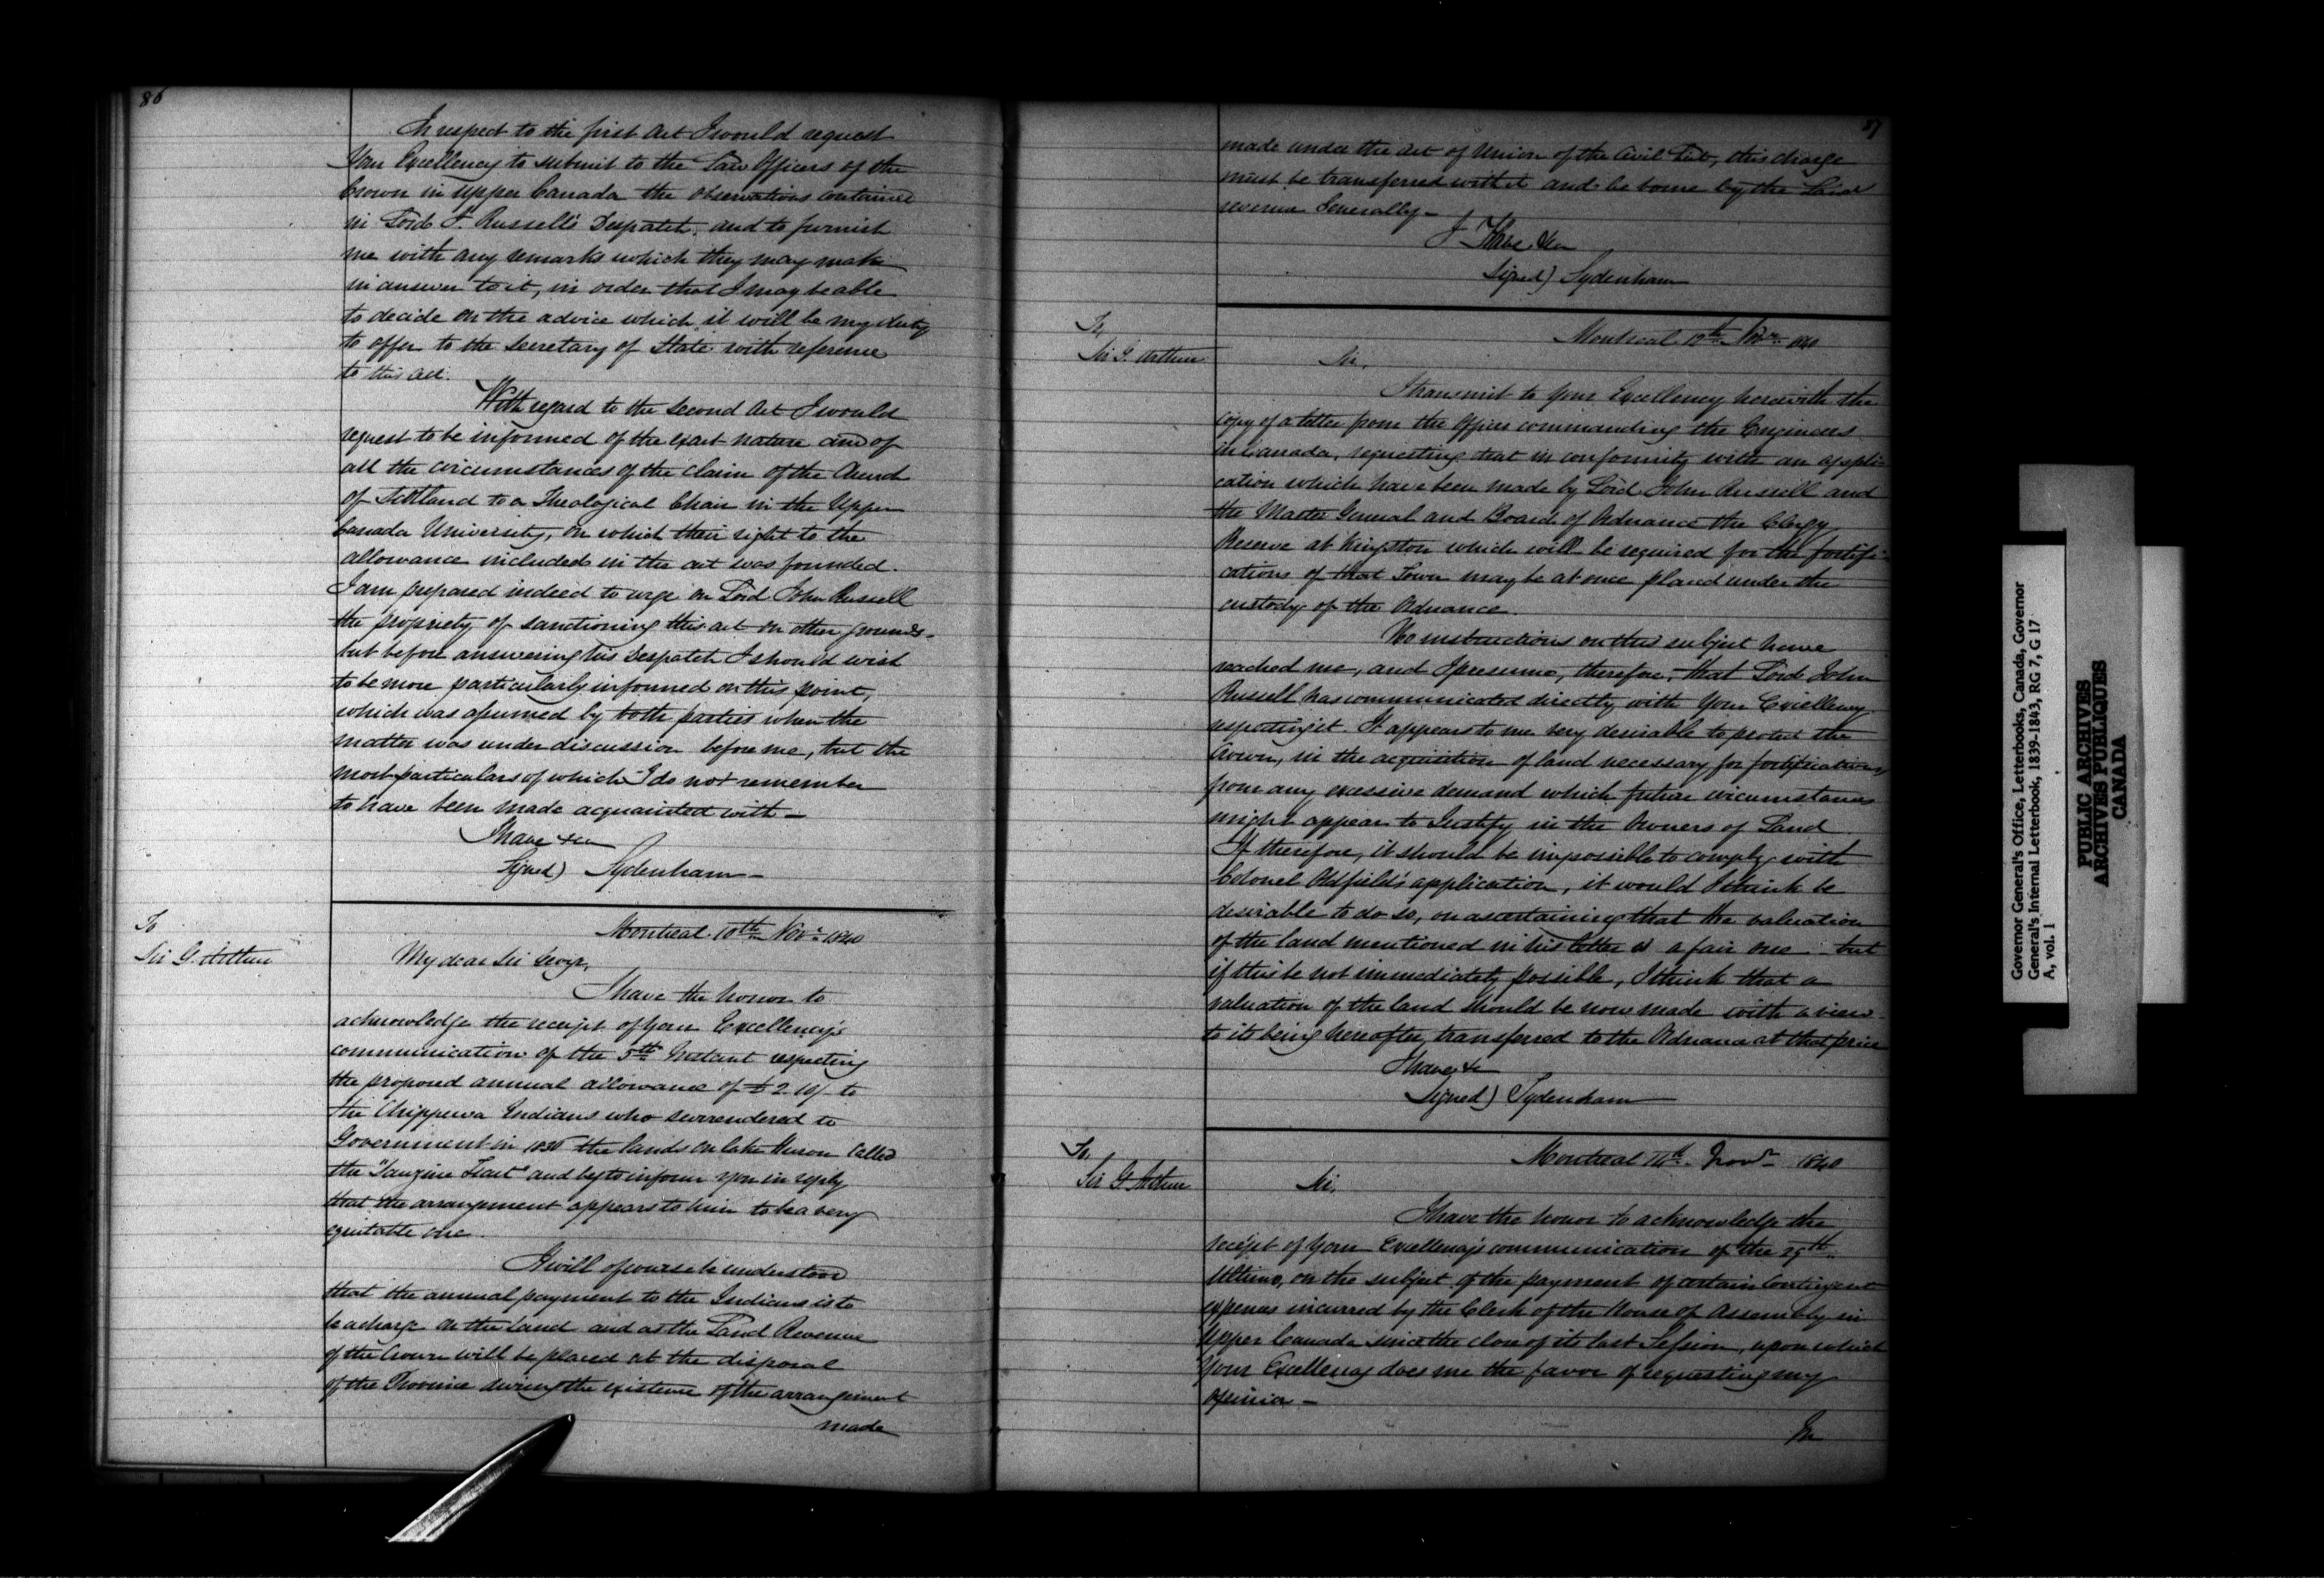 86
In respect to the first Act I would request
Your Excellency to submit to the Law Officers of the
Crown in Upper Canada the observations contained
in Lord J. Russell's Despatch, and to furnish
me with any remarks which they may make
in answer to it, in order that I may be able
to decide on the advice which it will be my duty
to offer to the Secretary of State with reference
to this act.
With regard to the second Act I would
request to be informed of the exact nature and of
all the circumstances of the claim of the Church
of Scotland to a Theological Chair in the Upper
Canada University, on which their right to the
allowance included in the act was founded.
I am prepared indeed to urge on Lord John Russell
the propriety of sanctioning this act on other grounds -
but before answering his Despatch I should wish
to be more particularly informed on this point,
which was assumed by both parties when the
matter was under discussion before me, but the
most particulars of which I do not remember
to have been made acquainted with -
I have &ca
Signed) Sydenham -
To
Sir G. Arthur
Montreal 10th Novr 1840
My dear Sir George,
I have the honor to
acknowledge the receipt of your Excellency's
communication of the 5th Instant respecting
the proposed annual allowance of £2.10/- to
the Chippewa Indians who surrendered to
Government in 1836 the lands on Lake Huron called
the "Saugine Tract" and beg to inform you in reply
that the arrangement appears to him to be a very
equitable one.
It will of course be understood
that the annual payment to the Indians is to
be a charge on the land and as the Land Revenue
of the Crown will be placed at the disposal
of the Province during the existence of the arrangement
made
87
made under the Act of Union of the Civil List, this charge
must be transferred with it and be borne by the Land
revenue Generally -
I Have &ca
Signed) Sydenham
To,
Sir G. Arthur
Montreal 12th Novr 1840
Sir,
I transmit to Your Excellency herewith the
copy of a letter from the Officer commanding the Engineers
in Canada, requesting that in conformity with an appli-
cation which have been made by Lord John Russell and
the Master General and Board of Ordnance the Clergy
Reserve at Kingston which will be required for the fortifi-
cations of that Town may be at once placed under the
custody of the Ordnance.
No instructions on this subject have
reached me, and I presume, therefore, that Lord John
Russell has communicated directly with Your Excellency
respecting it. It appears to me very desirable to protect the
Crown, in the acquisition of land necessary for fortifications
from any excessive demand which future circumstances
might appear to Justify in the Owners of Land
If therefore, it should be impossible to comply with
Colonel Oldfield's application, it would I think be
desirable to do so, on ascertaining that the valuation
of the land mentioned in his letter is a fair one - but
if this be not immediately possible, I think that a
valuation of the land should be now made with a view
to its being hereafter transferred to the Ordnance at that price
I have &c
Signed) Sydenham
To,
Sir G. Arthur
Montreal 14th Novr 1840
Sir,
I have the honor to acknowledge the
receipt of Your Excellency's communication of the 29th
Ultimo, on the subject of the payment of certain Contingent
expenses incurred by the Clerk of the House of Assembly in
Upper Canada since the close of its last Session, upon which
Your Excellency does me the favor of requesting my
opinion -
In
Governor General's Office, Letterbooks, Canada, Governor
General's Internal Letterbook, 1839-1843, RG 7, G 17
A, vol. 1
PUBLIC ARCHIVES
ARCHIVES PUBLIQUES
CANADA